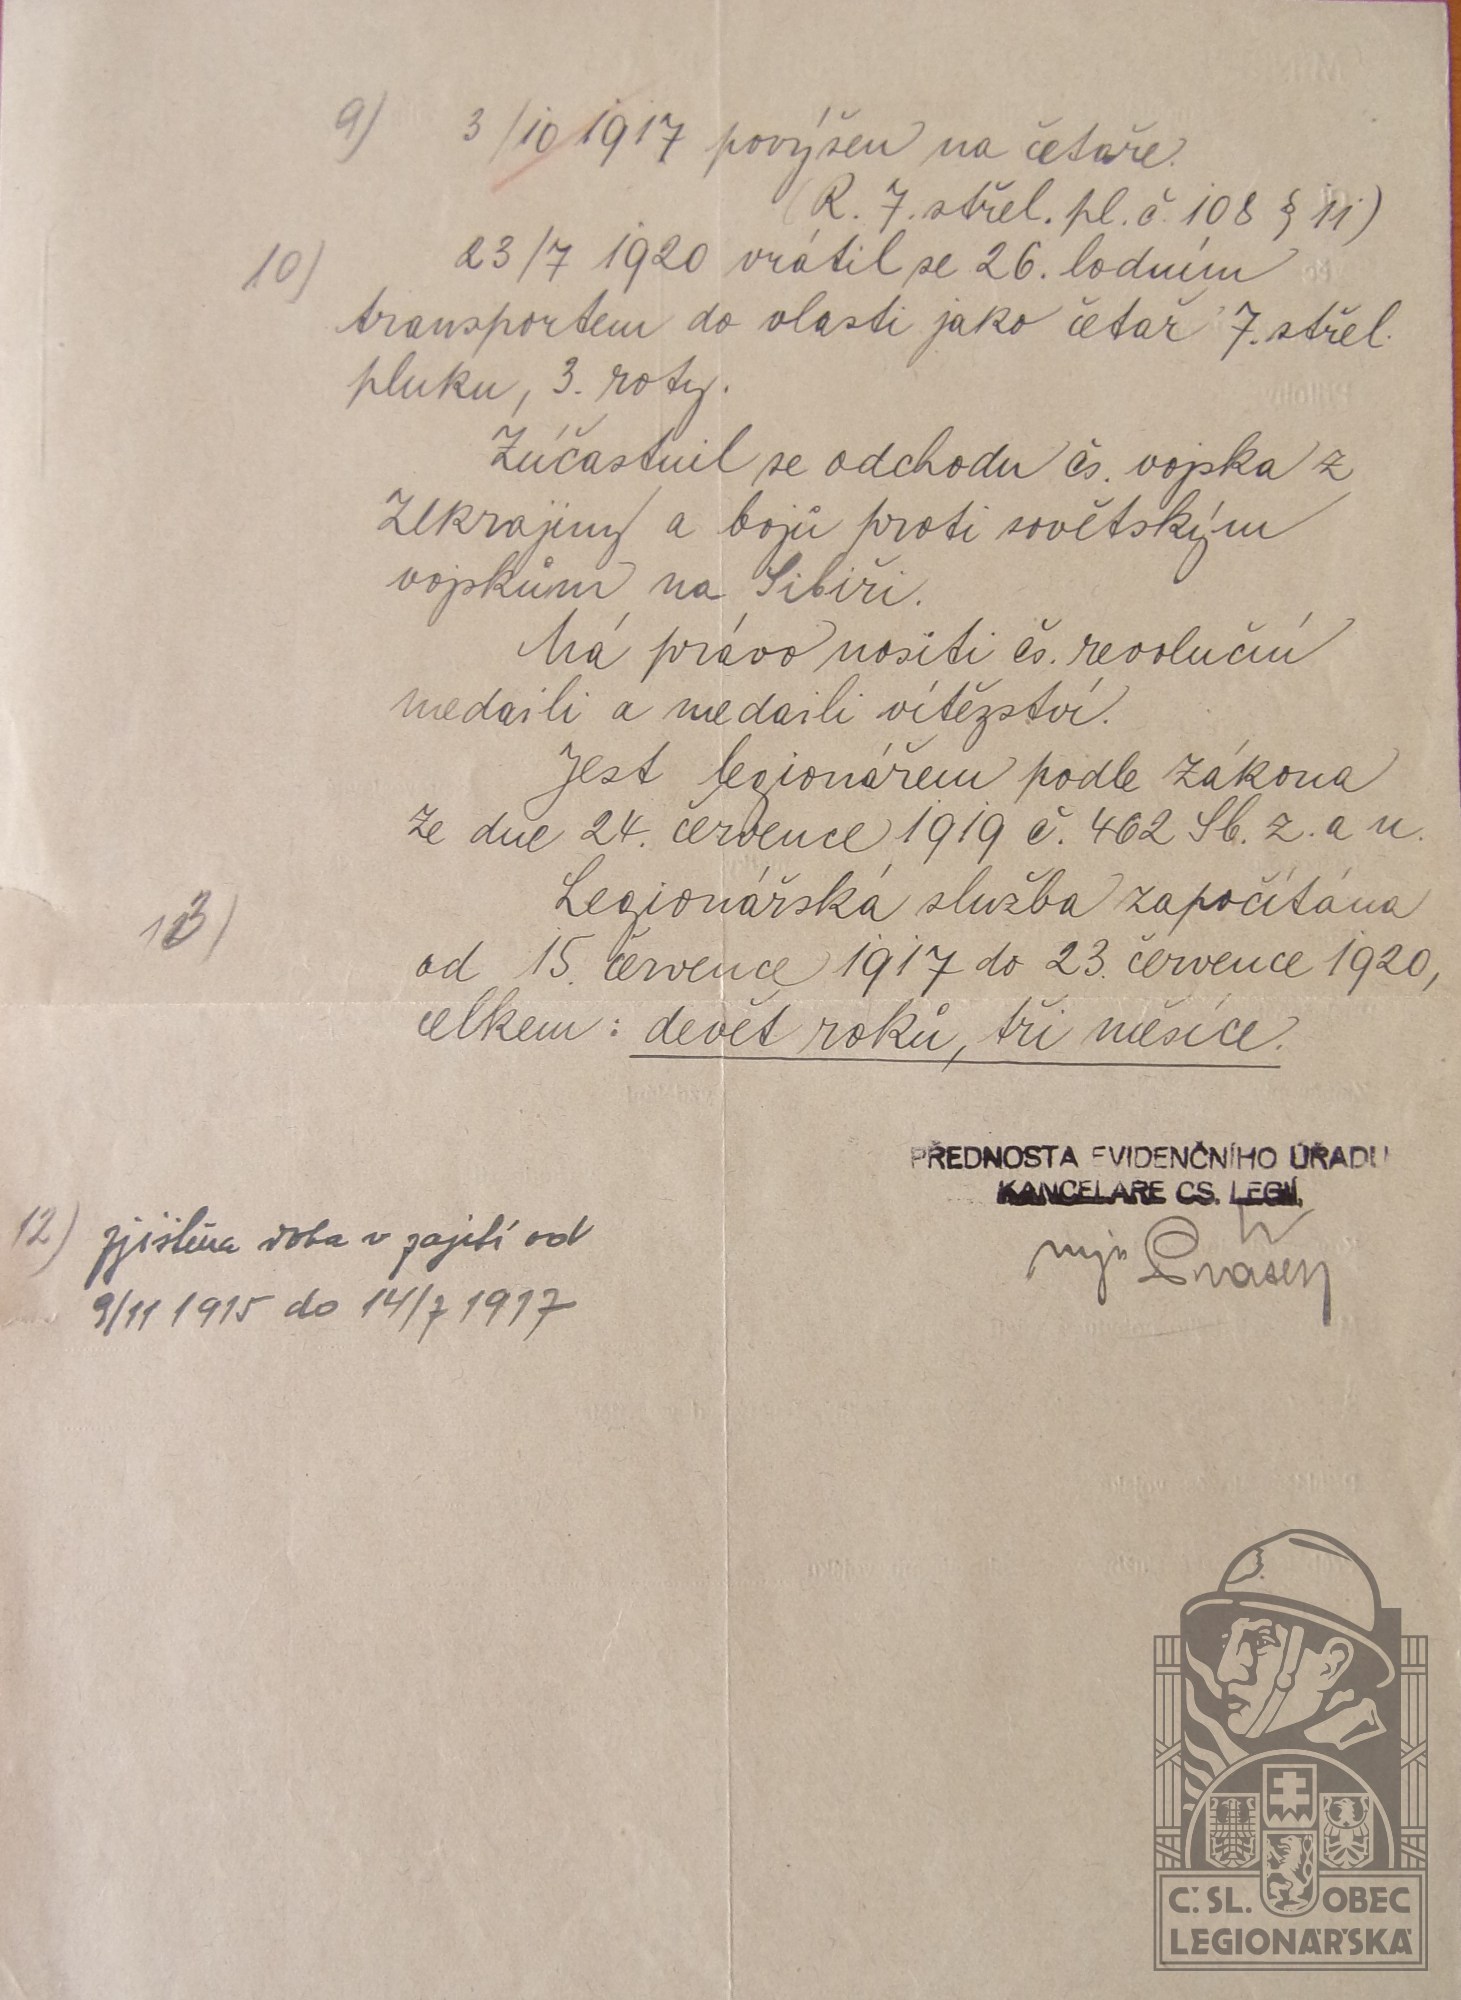 9) 3/10 1917 povýšen na četaře.
(R. 7. střel. pl. č. 108 § 11)
10) 23/7 1920 vrátil se 26. lodním
transportem do vlasti jako četař 7. střel.
pluku, 3. roty.
Zúčastnil se odchodu čs. vojska z
Ukrajiny a bojů proti sovětským
vojskům na Sibiři.
Má právo nositi čs. revoluční
medaili a medaili vítězství.
Jest legionářem podle zákona
ze dne 24. července 1919 č. 462 Sb. z. a n.
Legionářská služba započítána
13) od 15. července 1917 do 23. července 1920,
celkem: devět roků, tři měsíce.
PŘEDNOSTA EVIDENČNÍHO ÚŘADU
KANCELARE CS. LEGIÍ.
12) zjištěna doba v zajetí od
9/11 1915 do 14/7 1917
Č.SL. OBEC
LEGIONÁŘSKÁ